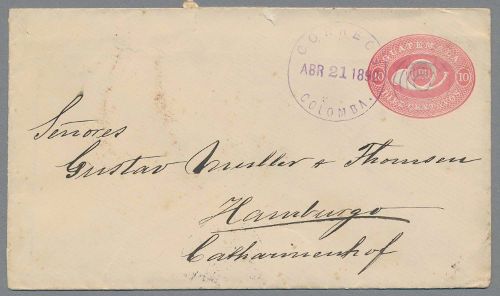 CORREOS
ABR 21 189
COLOMBA.
GUATEMALA
10 10
DIEZ CENTAVOS
Señores
Gustav Müller & Thomsen
Hamburgo
Catharinenhof